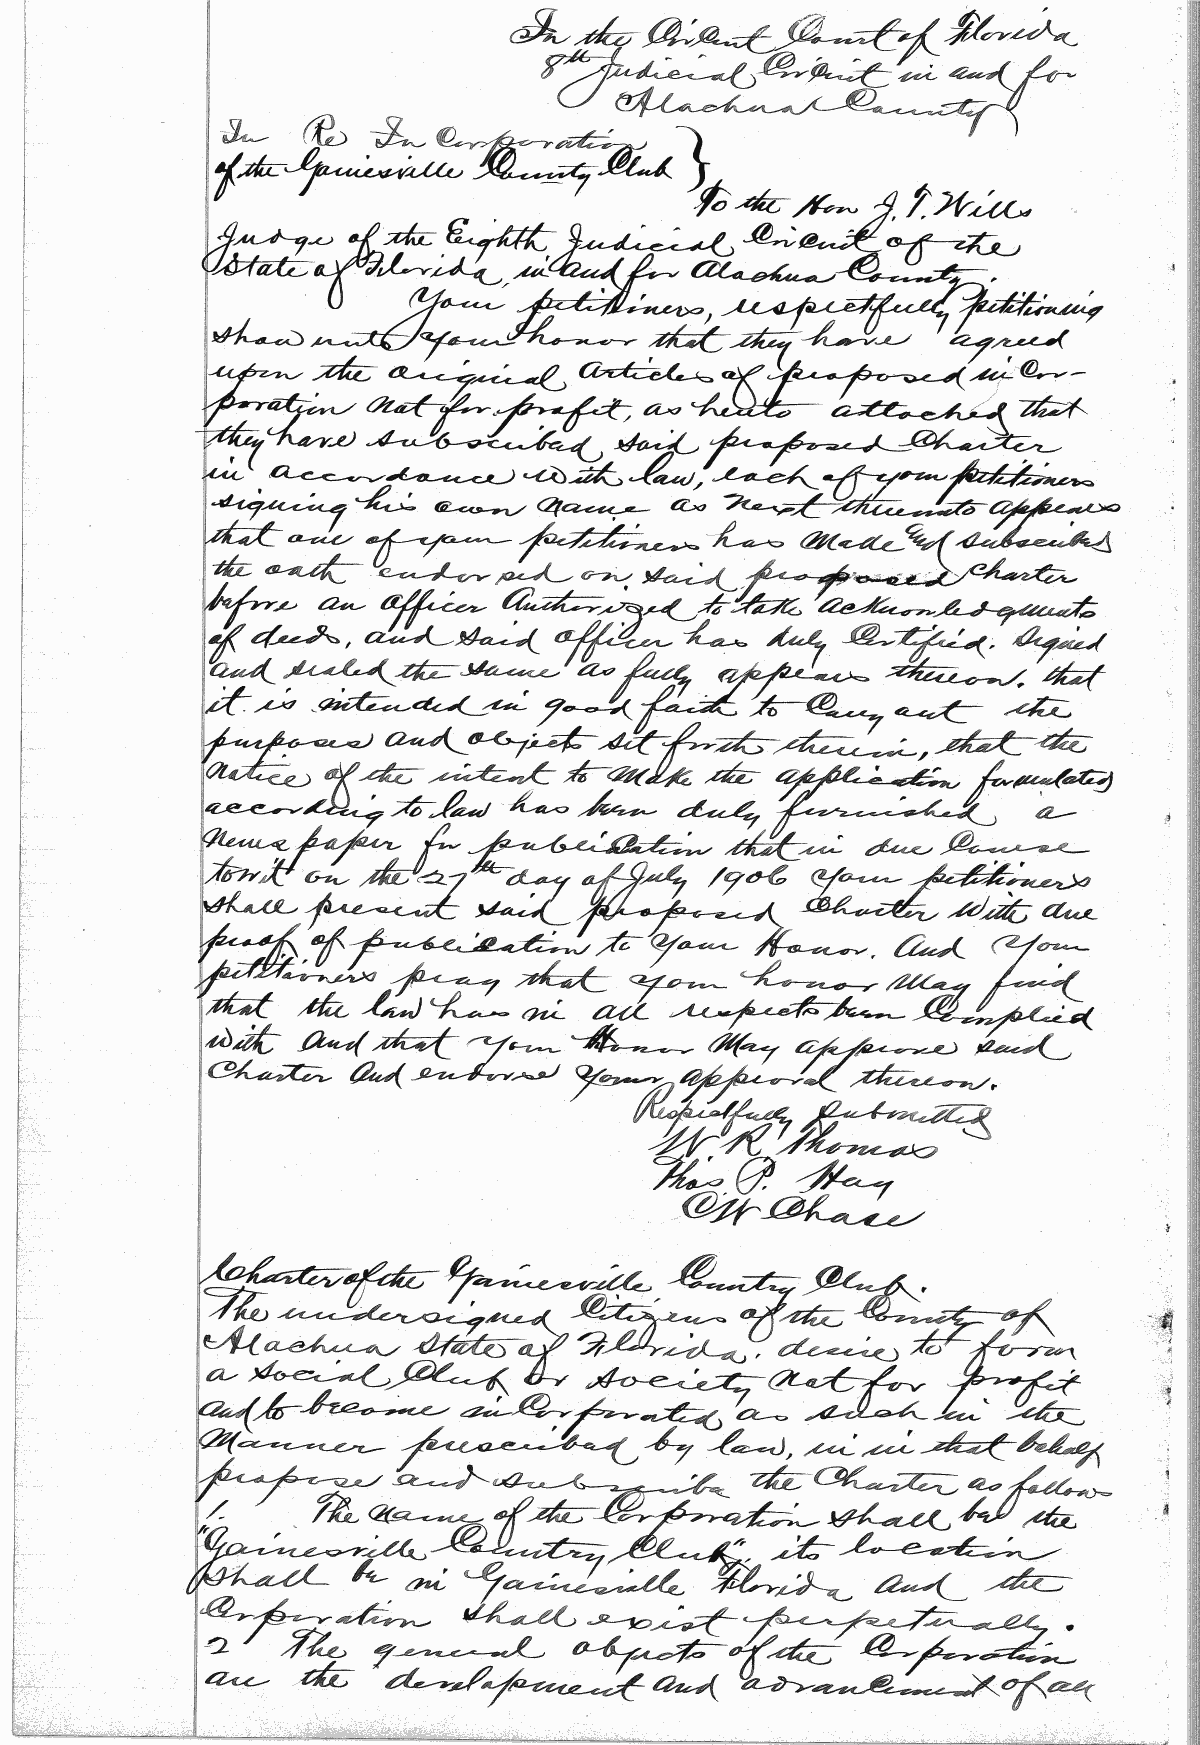 In the Circuit Court of Florida
8th Judicial Circuit in and for
Alachua County
In Re In Corporation
of the Gainesville County Club }
To the Hon J. T. Wills
Judge of the Eighth Judicial Circuit of the
State of Florida, in and for Alachua County.
Your petitioners, respectfully petitioning
show unto your honor that they have agreed
upon the original Articles of proposed in Cor-
poration not for profit, as hereto attached that
they have subscribed said proposed Charter
in accordance with law, each of your petitioners
signing his own name as next thereunto appears
that one of your petitioners has Made and subscribed
the oath endorsed on said proposed Charter
before an officer Authorized to take acknowledgments
of deeds, and said officer has duly Certified. Signed
and sealed the same as fully appears thereon. that
it is intended in good faith to Carry out the
purposes and objects set forth therein, that the
notice of the intent to make the application formulated
according to law has been duly furnished a
News paper for publication that in due Course
towit on the 27th day of July 1906 your petitioners
shall present said proposed Charter with due
proof of publication to your Honor. And your
petitioners pray that your honor May find
that the law has in all respects been Complied
with And that your Honor May approve said
Charter And endorse your approval thereon.
Respectfully Submitted
W. R. Thomas
Thos P. Hay
C W Chase
Charter of the Gainesville Country Club.
The undersigned Citizens of the County of
Alachua State of Florida. desire to form
a social Club or society not for profit
and to become in Corporated as such in the
Manner prescribed by law, in in that behalf
propose and subscribe the Charter as follows
1. The name of the Corporation shall be the
"Gainesville Country Club", its location
shall be in Gainesville Florida and the
Corporation shall exist perpetually.
2 The general objects of the Corporation
are the development and advancement of all